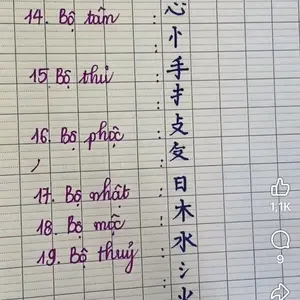 14. Bộ tâm : 心
忄
15. Bộ thủ : 手
扌
16. Bộ phộc : 攴
攵
17. Bộ nhật : 日
18. Bộ mộc : 木
19. Bộ thuỷ : 水
氵
1,1K
9